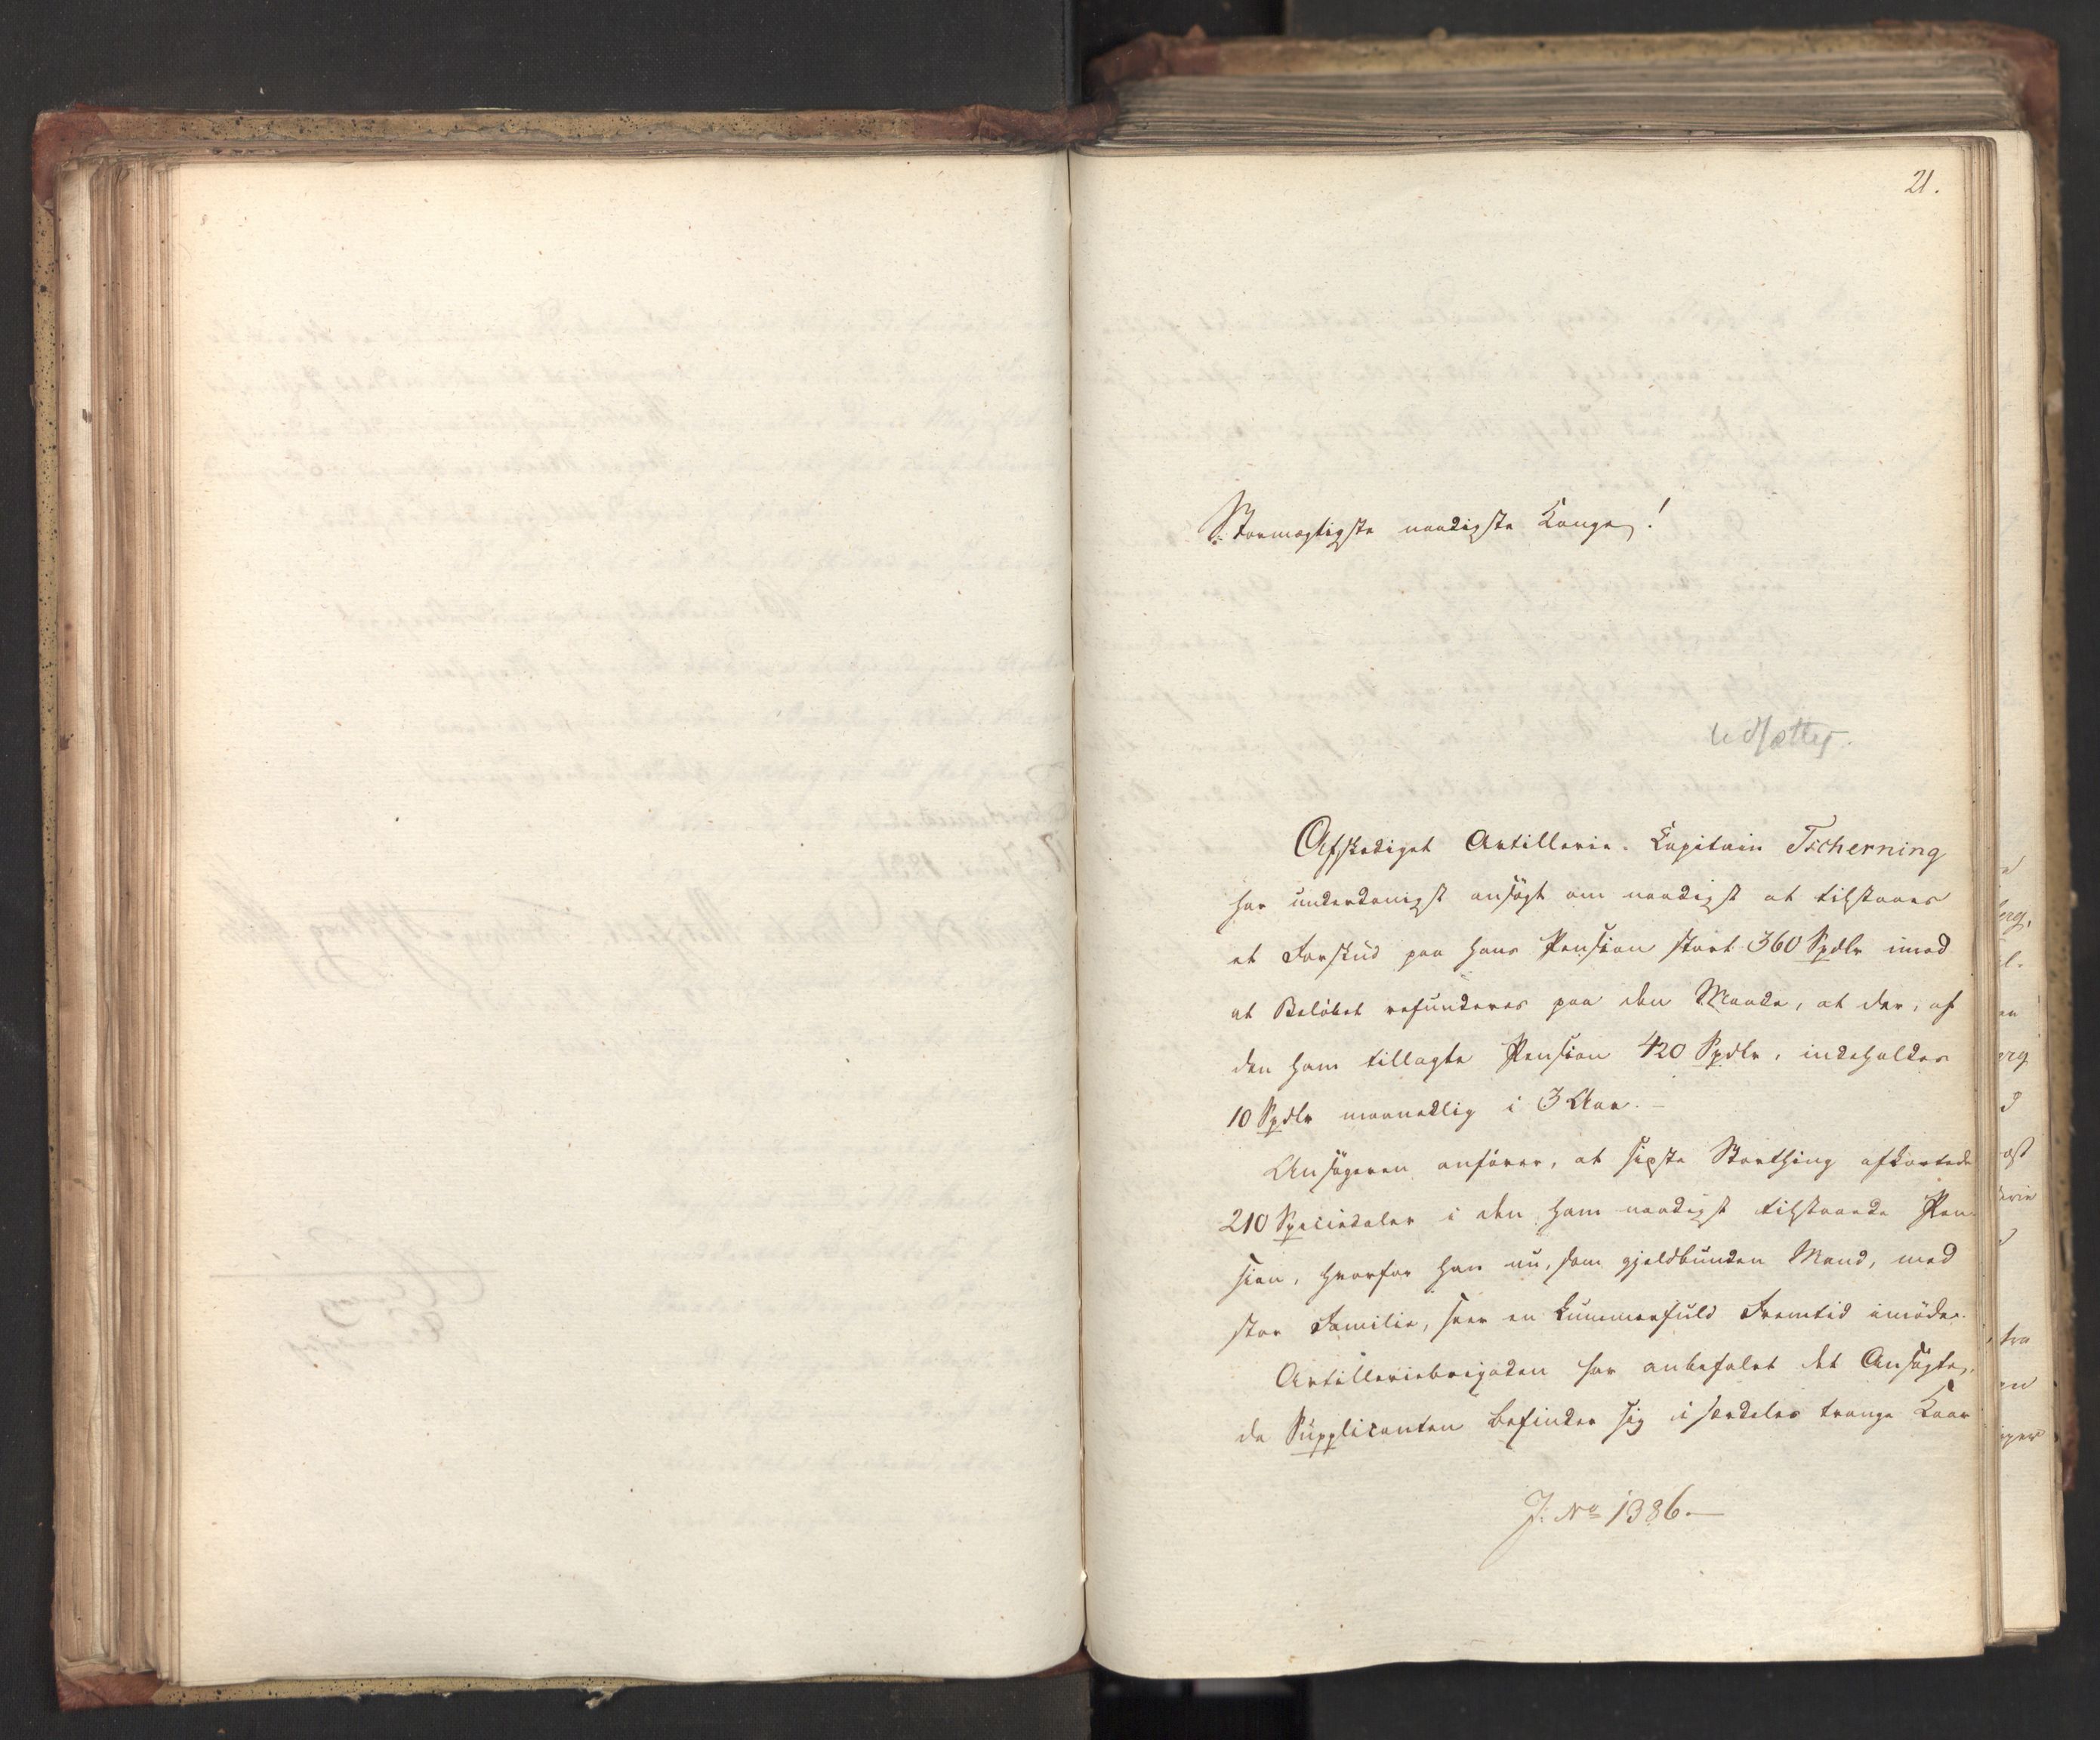 21.
Stormægtigste naadigste Konge!
udsættes.
Afskediget Artillerie-Kapitain Tscherning
har underdanigst ansøgt om naadigst at tilstaaes
et Forskud paa hans Pension stort 360 Spdlr imod
at Beløbet refunderes paa den Maade, at der, af
den ham tillagte Pension 420 Spdlr, indeholdes
10 Spdlr maanedlig i 3 Aar. —
Ansøgeren anfører, at sidste Storthing afkortede
210 Speciedaler i den ham naadigst tilstaaede Pen-
sion, hvorfor han nu, som gjeldbunden Mand, med
stor Familie, seer en kummerfuld Fremtid imøde.
Artilleriebrigaden har anbefalet det Ansøgte,
da Supplicanten befinder sig i særdeles trange Kaar
J: No 1386. —